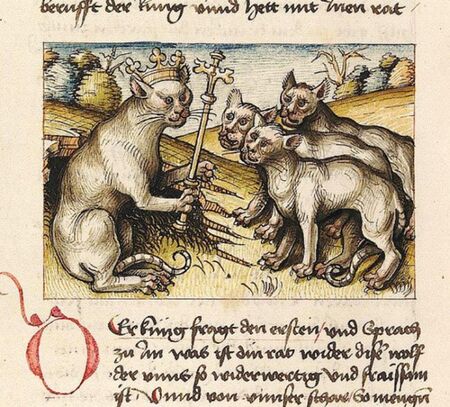 berufft der küng vnnd hett mit Jnen rat
DEr küng fragt den ersten vnd sprach
zu Jm was ist din rat wider dise wolf
der vnns so widerwertig vnd fraissam
ist Vnnd von vnnser schar so mengen